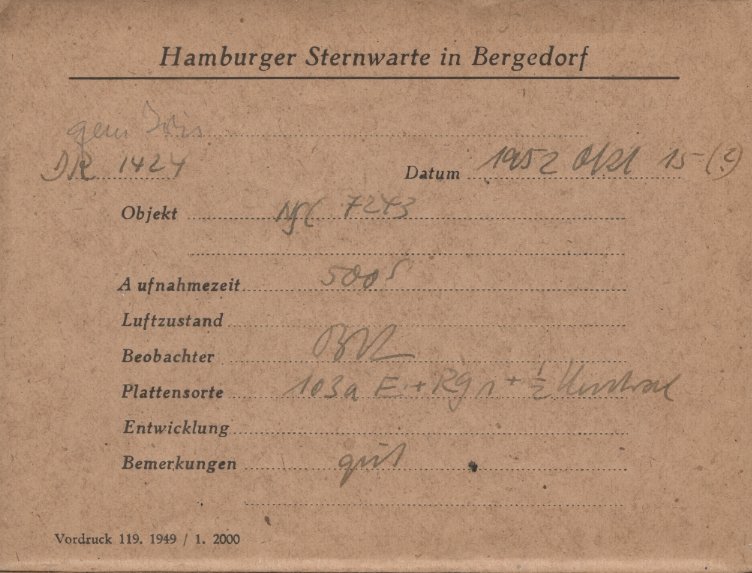 Hamburger Sternwarte in Bergedorf
gem Iris
DR 1424 Datum 1952 Okt 15 (?)
Objekt NGC 7243
Aufnahmezeit 500s
Luftzustand
Beobachter
Plattensorte 103a E + Rg 1 + ½
Entwicklung
Bemerkungen gut
Vordruck 119. 1949 / 1. 2000